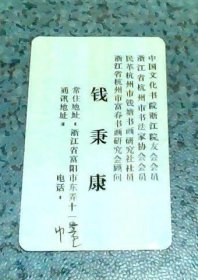 中国文化书院浙江院友会会员
浙江省杭州市书法家协会会员
民革杭州市钱塘书画研究社社员
浙江省杭州市富春书画研究会顾问
钱秉康
常住地址:浙江省富阳市东弄十一
通讯地址: 电话: